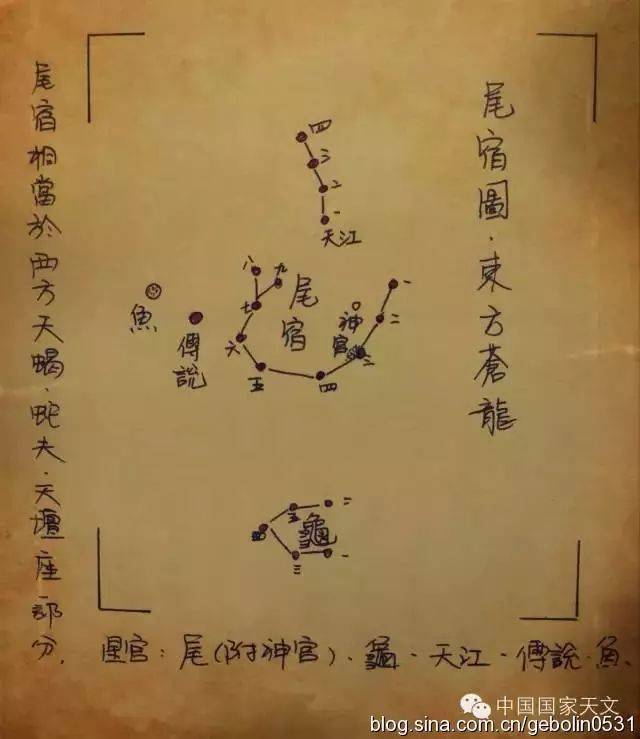 尾宿圖·東方蒼龍
四
三
二
一
天江
魚
傅説
八
九
七
六
五
四
三
二
一
尾宿
神宮
二
五
四
龜
三
一
尾宿相當於西方天蝎·蛇夫·天壇座一部分.
星官：尾(附神宮)·龜·天江·傅説·魚、
中国国家天文
blog.sina.com.cn/gebolin0531